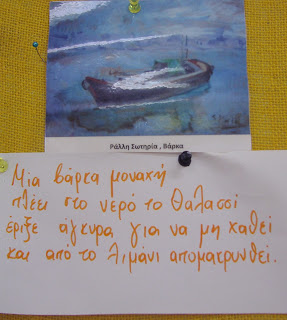 Ράλλη Σωτηρία , Βάρκα
Μια βάρκα μοναχή
πλέει στο νερό το θαλασσί
έριξε άγκυρα για να μη χαθεί
και από το λιμάνι απομακρυνθεί.